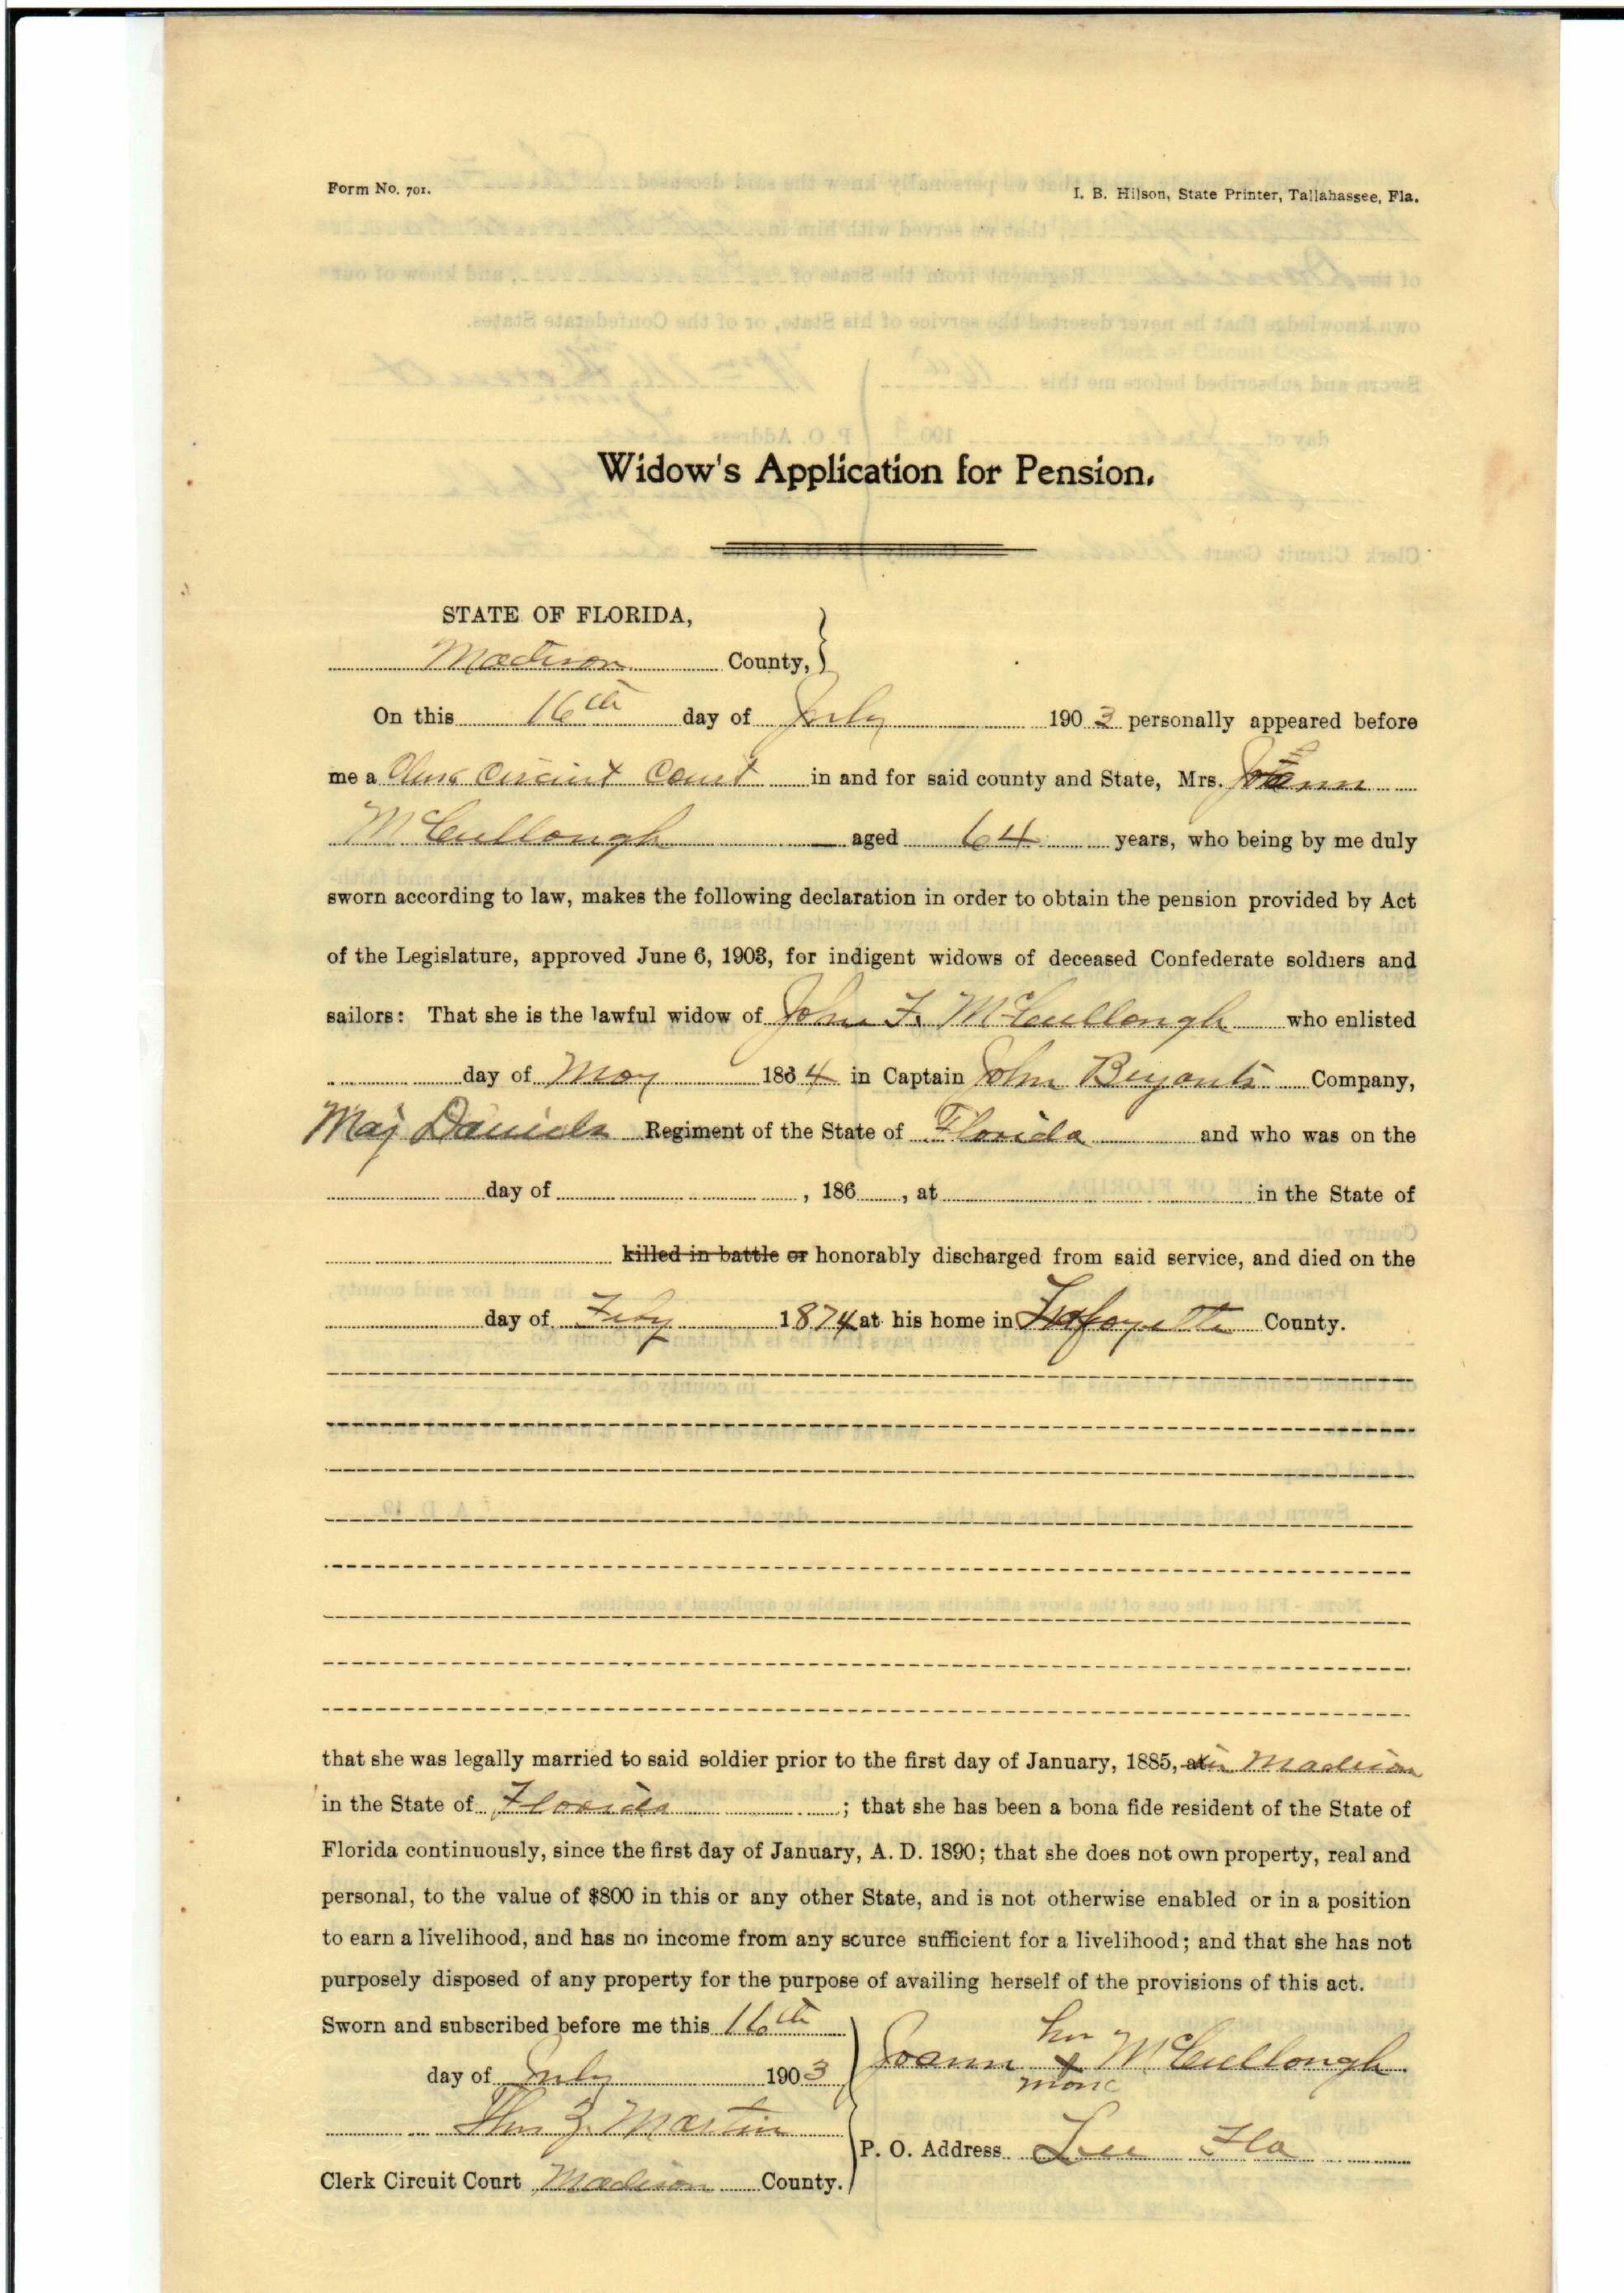 Form No. 701.
I. B. Hilson, State Printer, Tallahassee, Fla.
Widow's Application for Pension.
STATE OF FLORIDA,
Madison County,
On this 16th day of July 1903 personally appeared before
me a Clerk Circuit Court in and for said county and State, Mrs. Joann
McCullough aged 64 years, who being by me duly
sworn according to law, makes the following declaration in order to obtain the pension provided by Act
of the Legislature, approved June 6, 1903, for indigent widows of deceased Confederate soldiers and
sailors: That she is the lawful widow of John F. McCullough who enlisted
day of May 1864 in Captain John Bryants Company,
Maj Daniels Regiment of the State of Florida and who was on the
day of , 186 , at in the State of
killed in battle or honorably discharged from said service, and died on the
day of Feby 1874 at his home in Lafayette County.
that she was legally married to said soldier prior to the first day of January, 1885, at in Madison
in the State of Florida ; that she has been a bona fide resident of the State of
Florida continuously, since the first day of January, A. D. 1890; that she does not own property, real and
personal, to the value of $800 in this or any other State, and is not otherwise enabled or in a position
to earn a livelihood, and has no income from any source sufficient for a livelihood; and that she has not
purposely disposed of any property for the purpose of availing herself of the provisions of this act.
Sworn and subscribed before me this 16th
day of July 1903
Martin
Clerk Circuit Court Madison County.
her
Joann x McCullough
mark
P. O. Address Lee Fla